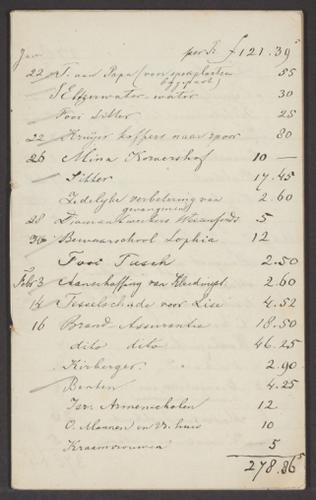 Jan per Tr. f 121.39⁵
22 T. aan Papa (voor spekplasten 55
Seltzerwater-water 30
Fooi Sitter 25
22 Kruijer koffers naar spoor 80
26 Mina Komershof 10 —
Sitter 17.45
Zedelijke verbetering van 2.60
gevangenen
28 Diamantwerkers Weezenfonds 5
30 Bewaarschool Sophia 12
Fooi Tusch 2.50
Feb 3 Aanschaffing van Kledingst. 2.60
14 Tesselschade voor Lise 4.52
16 Brand Assurantie 18.50
dito dito 46.25
Kirberger. 2.90
Benten 4.25
Isr. Armenscholen 12
O. Mannen en Vr. huis 10
Kraamvrouwen 5
278.86⁵